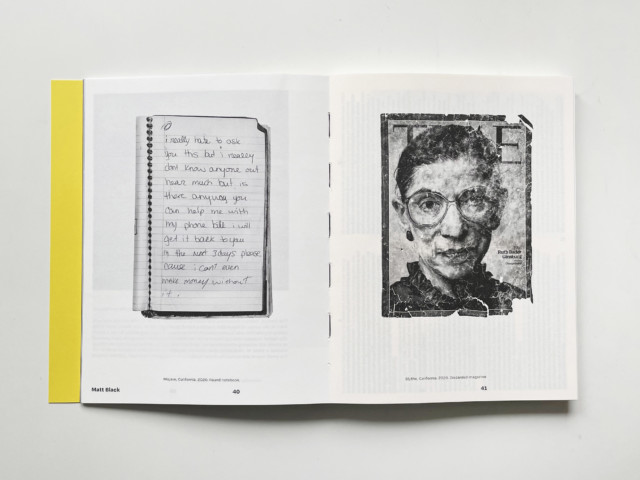 10
i really hate to ask
you this but i really
dont know anyone out
hear much but is
there anyway you
can help me with
my phone bill i will
get it back to you
in the next 3 days please
cause i can't even
make money without
it.
Matt Black
40
T E
Ruth Bader
Ginsburg
41